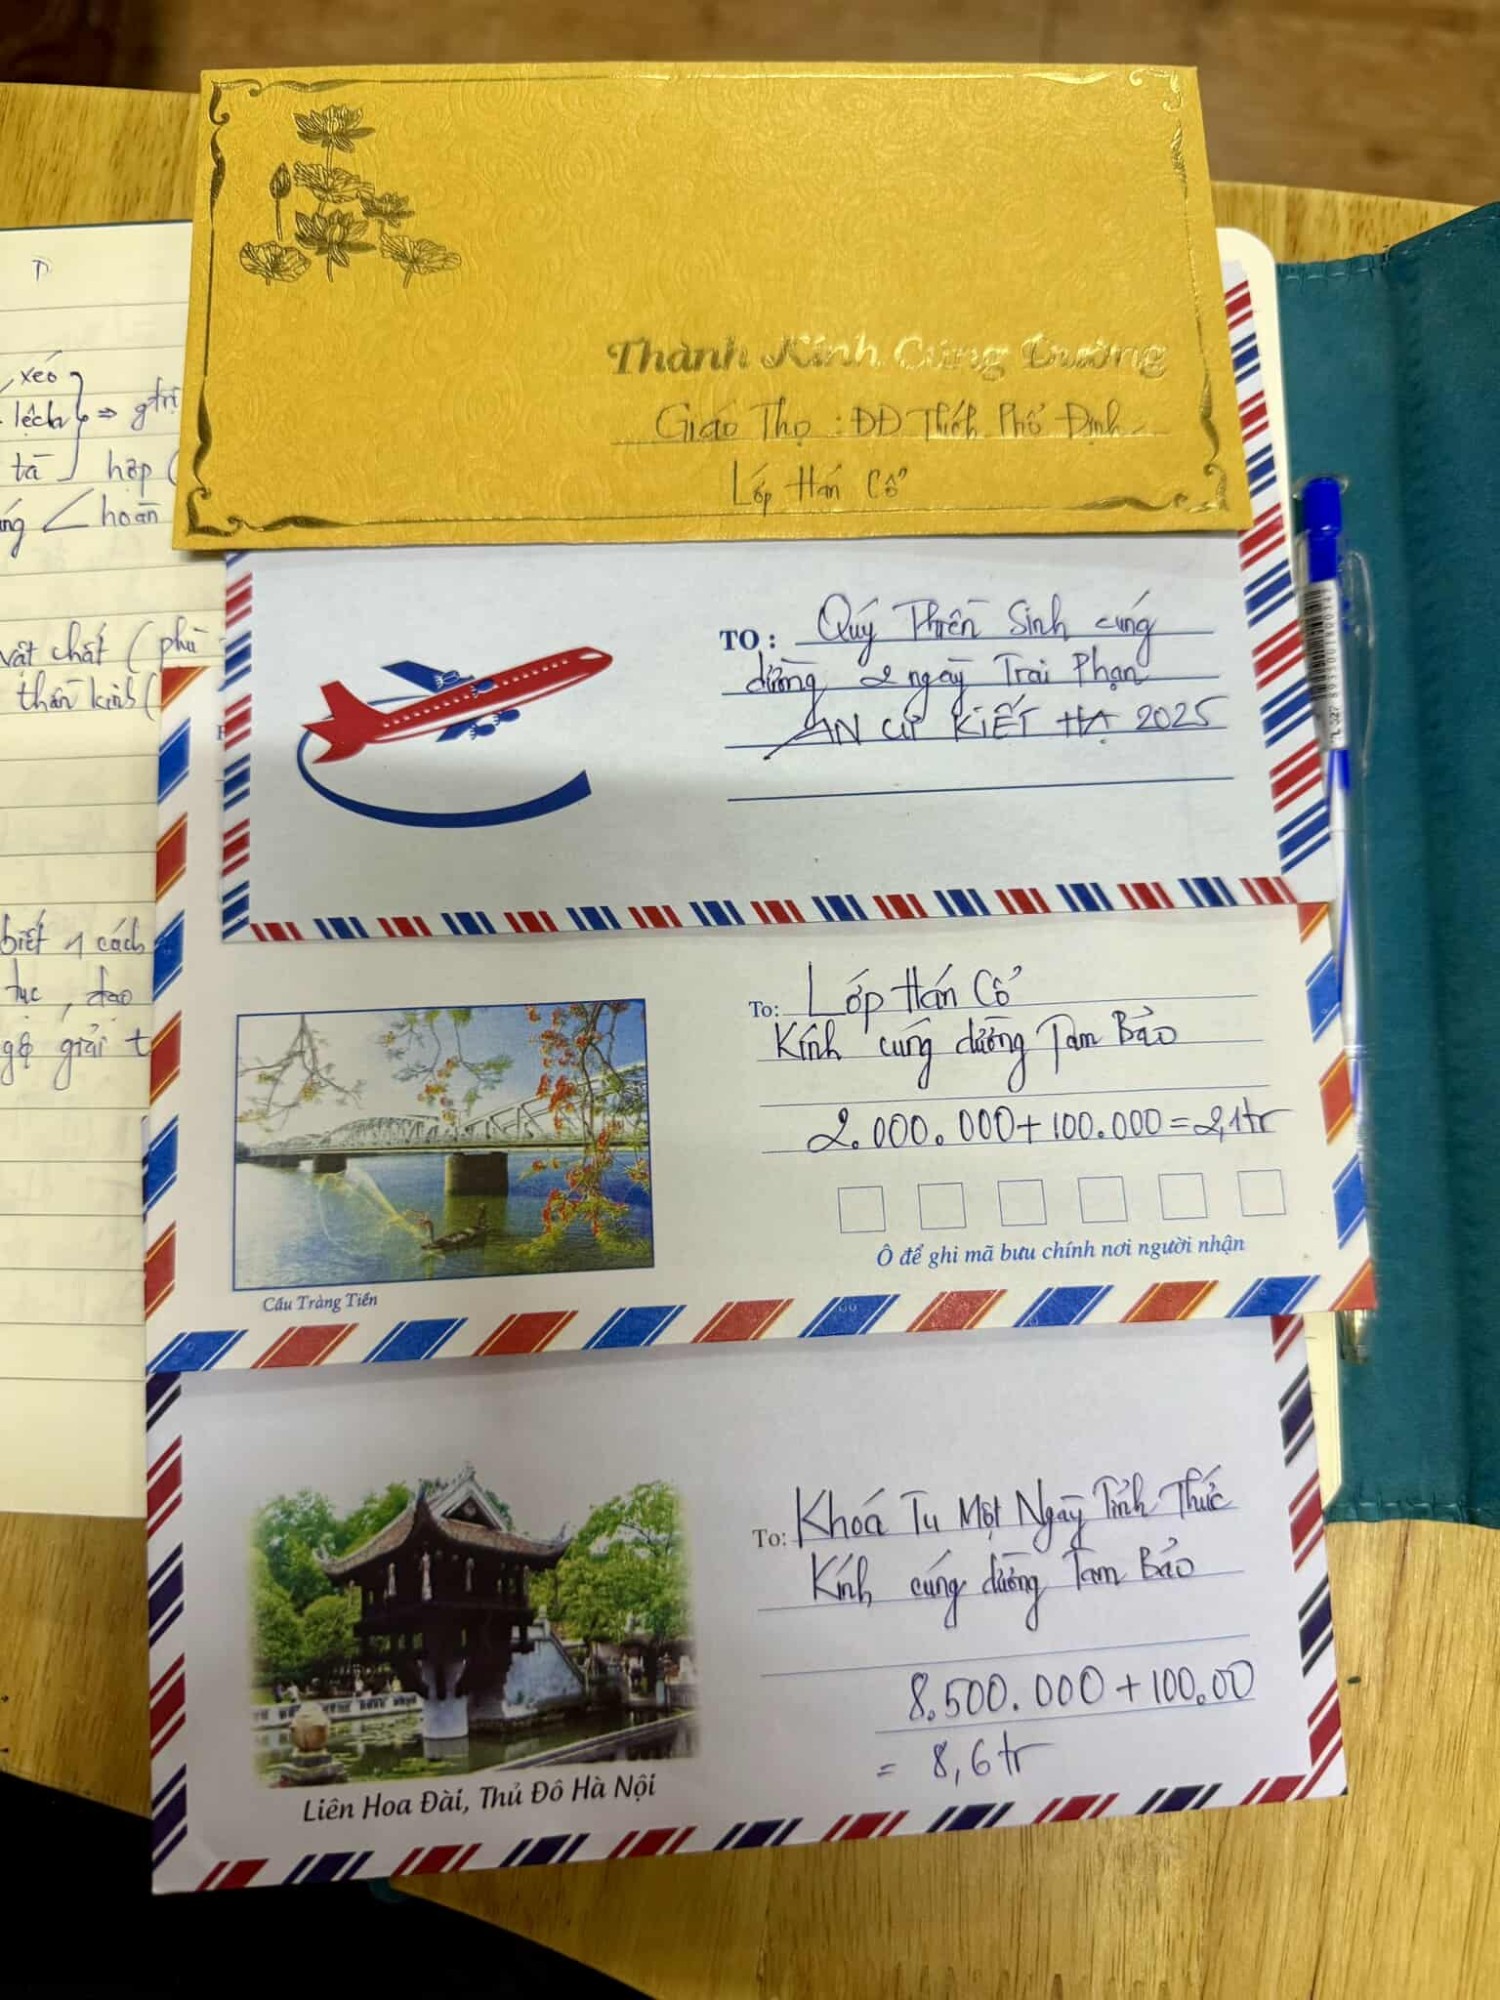 xéo
lệch ⇒ gtrị
tà hợp (
hoàn
vật chất ( phù
thần kinh (
biết 1 cách
tục, đạo
ngộ giải t
Thành Kính Cúng Dường
Giáo Thọ : ĐĐ Thích Phổ Định
Lớp Hán Cổ
TO : Quý Thiền Sinh cúng
dường 2 ngày Trai Phạn
AN CƯ KIẾT HẠ 2025
To: Lớp Hán Cổ
Kính cúng dường Tam Bảo
2.000.000 + 100.000 = 2,1tr
Ô để ghi mã bưu chính nơi người nhận
Cầu Tràng Tiền
To: Khoá Tu Một Ngày Tỉnh Thức
Kính cúng dường Tam Bảo
8.500.000 + 100.00
= 8,6 tr
Liên Hoa Đài, Thủ Đô Hà Nội